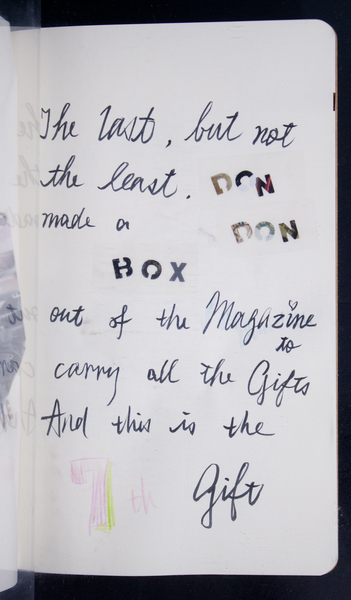 The last, but not
the least. DON
made a DON
BOX
out of the Magazine
to
carry all the Gifts
And this is the
7th Gift